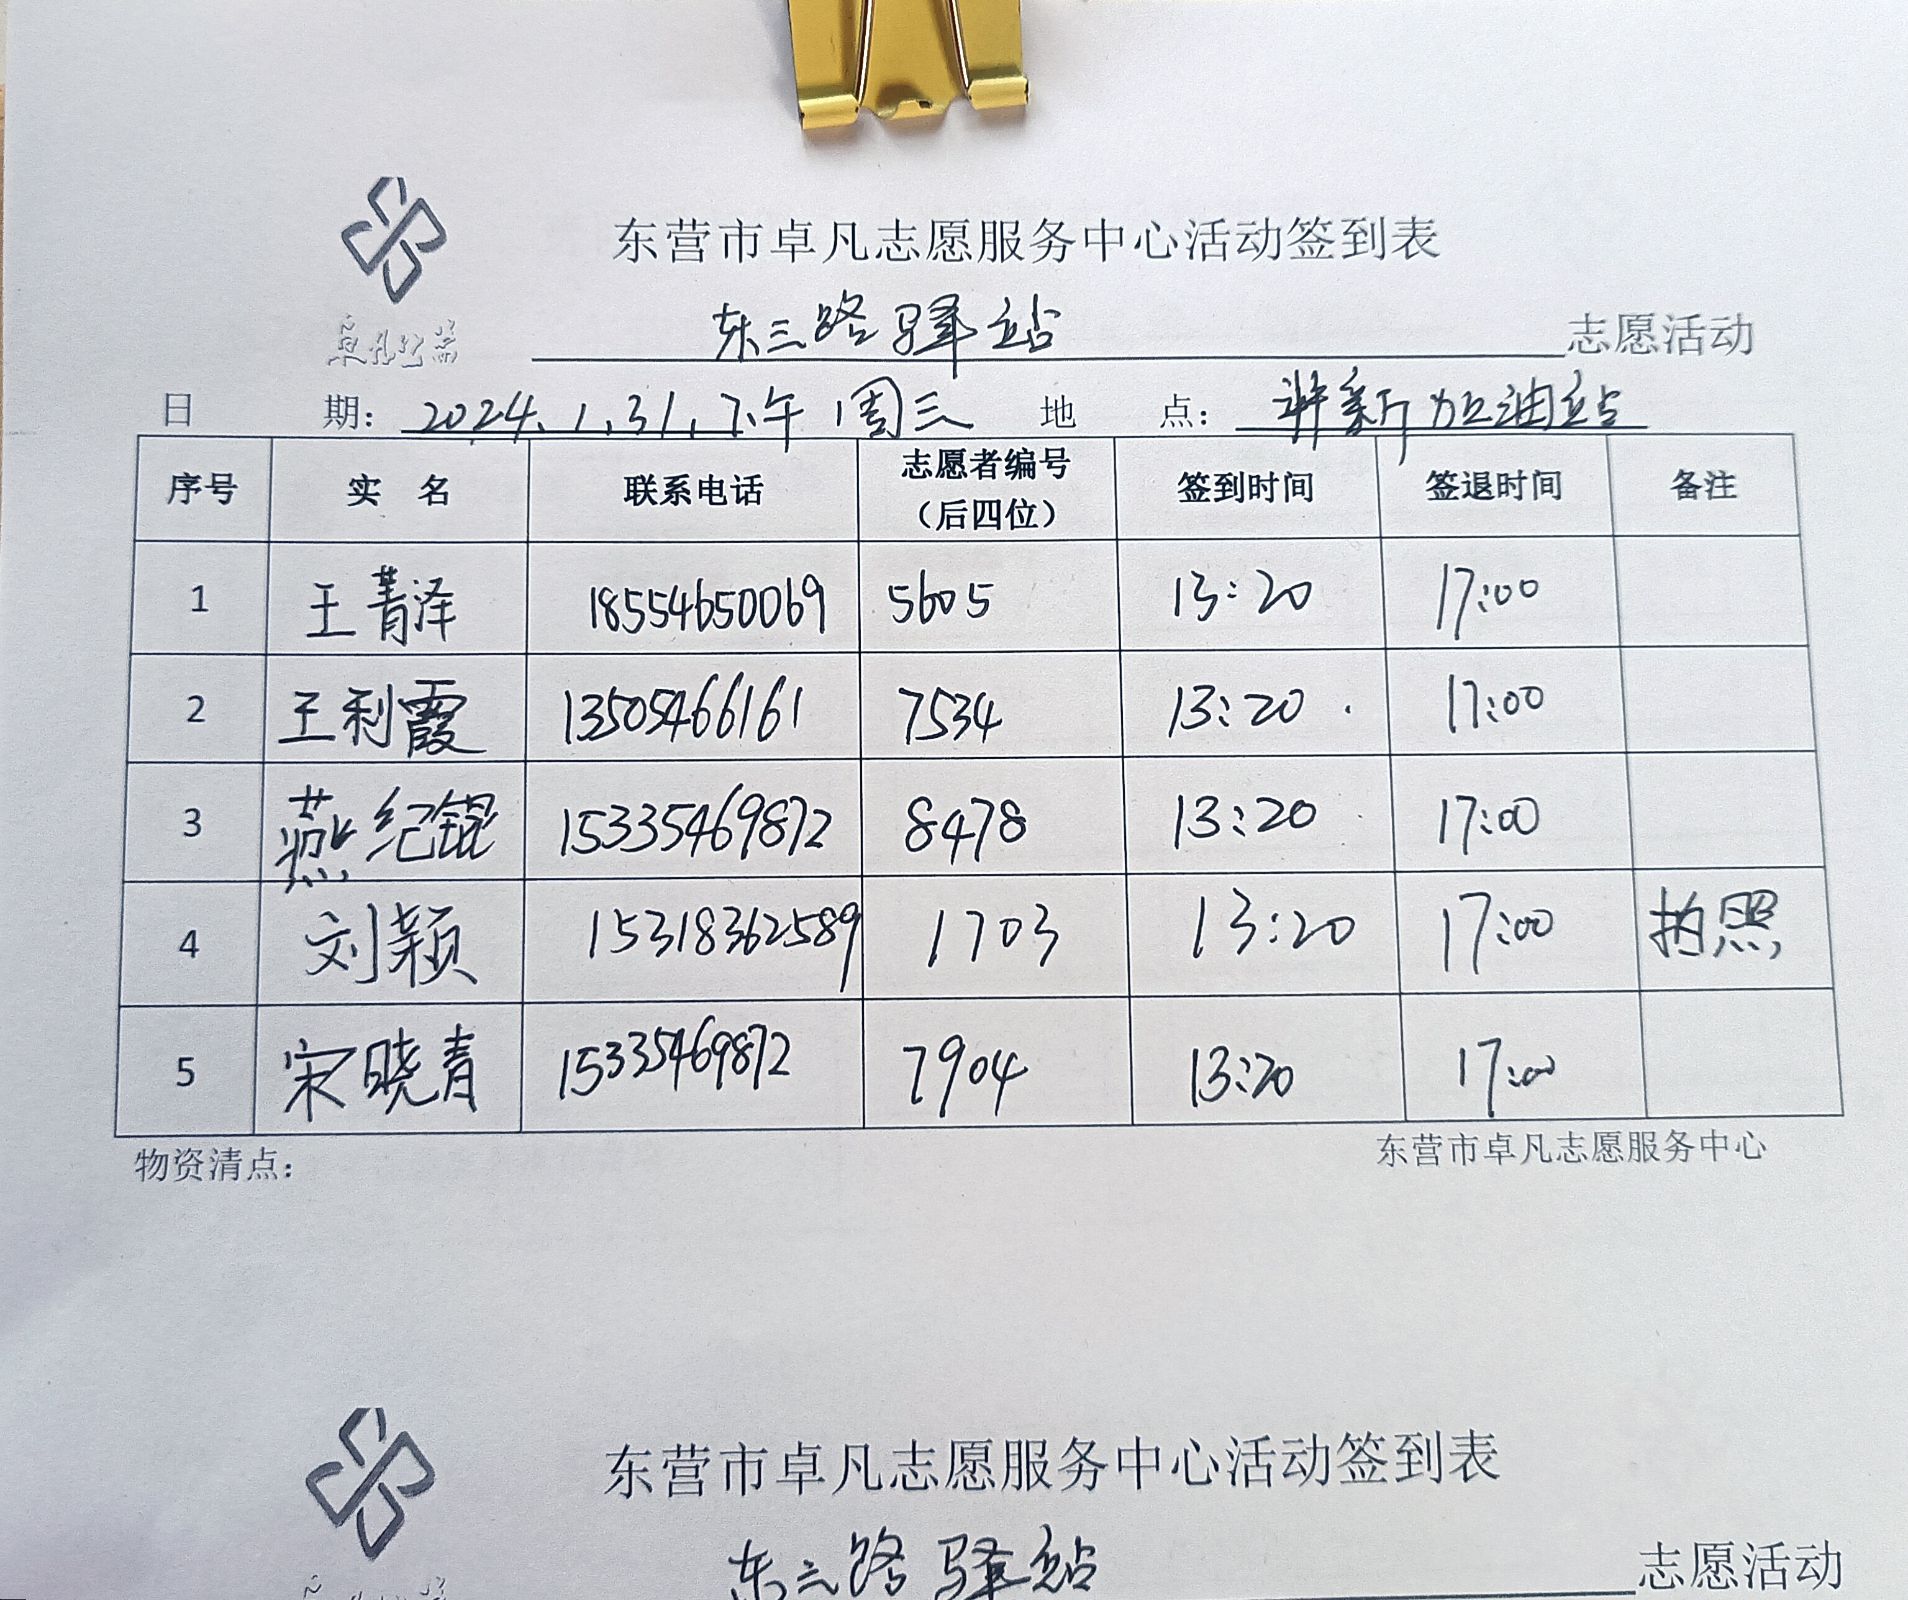 东营市卓凡志愿服务中心活动签到表
东三路驿站 志愿活动
日 期: 2024.1.31.下午 周三 地 点: 新加油站
序号 实 名 联系电话 志愿者编号（后四位） 签到时间 签退时间 备注
1 王菁泽 18554650069 5605 13:20 17:00
2 王利霞 13505466161 7534 13:20 17:00
3 燕纪锟 15335469872 8478 13:20 17:00
4 刘颖 15318362589 1703 13:20 17:00 拍照
5 宋晓青 15335469872 7904 13:20 17:00
物资清点: 东营市卓凡志愿服务中心
东营市卓凡志愿服务中心活动签到表
东三路驿站 志愿活动